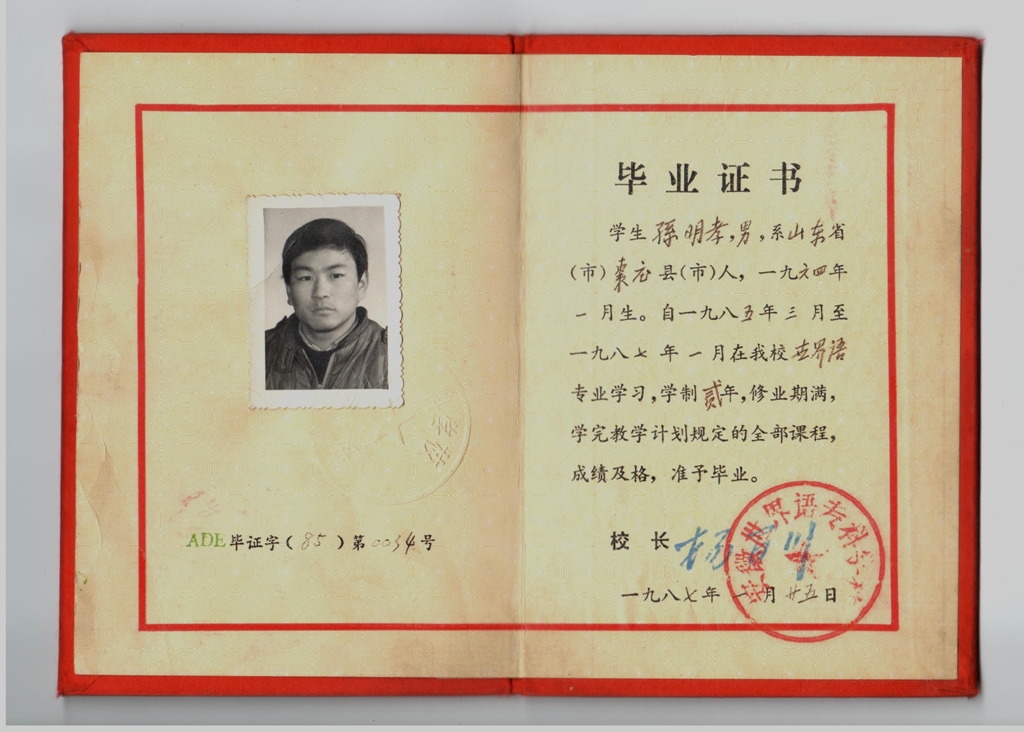 ADE毕证字(85)第0034号
毕业证书
学生孫明孝,男,系山东省
(市)枣庄县(市)人,一九六四年
一月生。自一九八五年三月至
一九八七年一月在我校世界语
专业学习,学制贰年,修业期满,
学完教学计划规定的全部课程,
成绩及格,准予毕业。
校长
安徽世界语专科学校
一九八七年一月廿五日